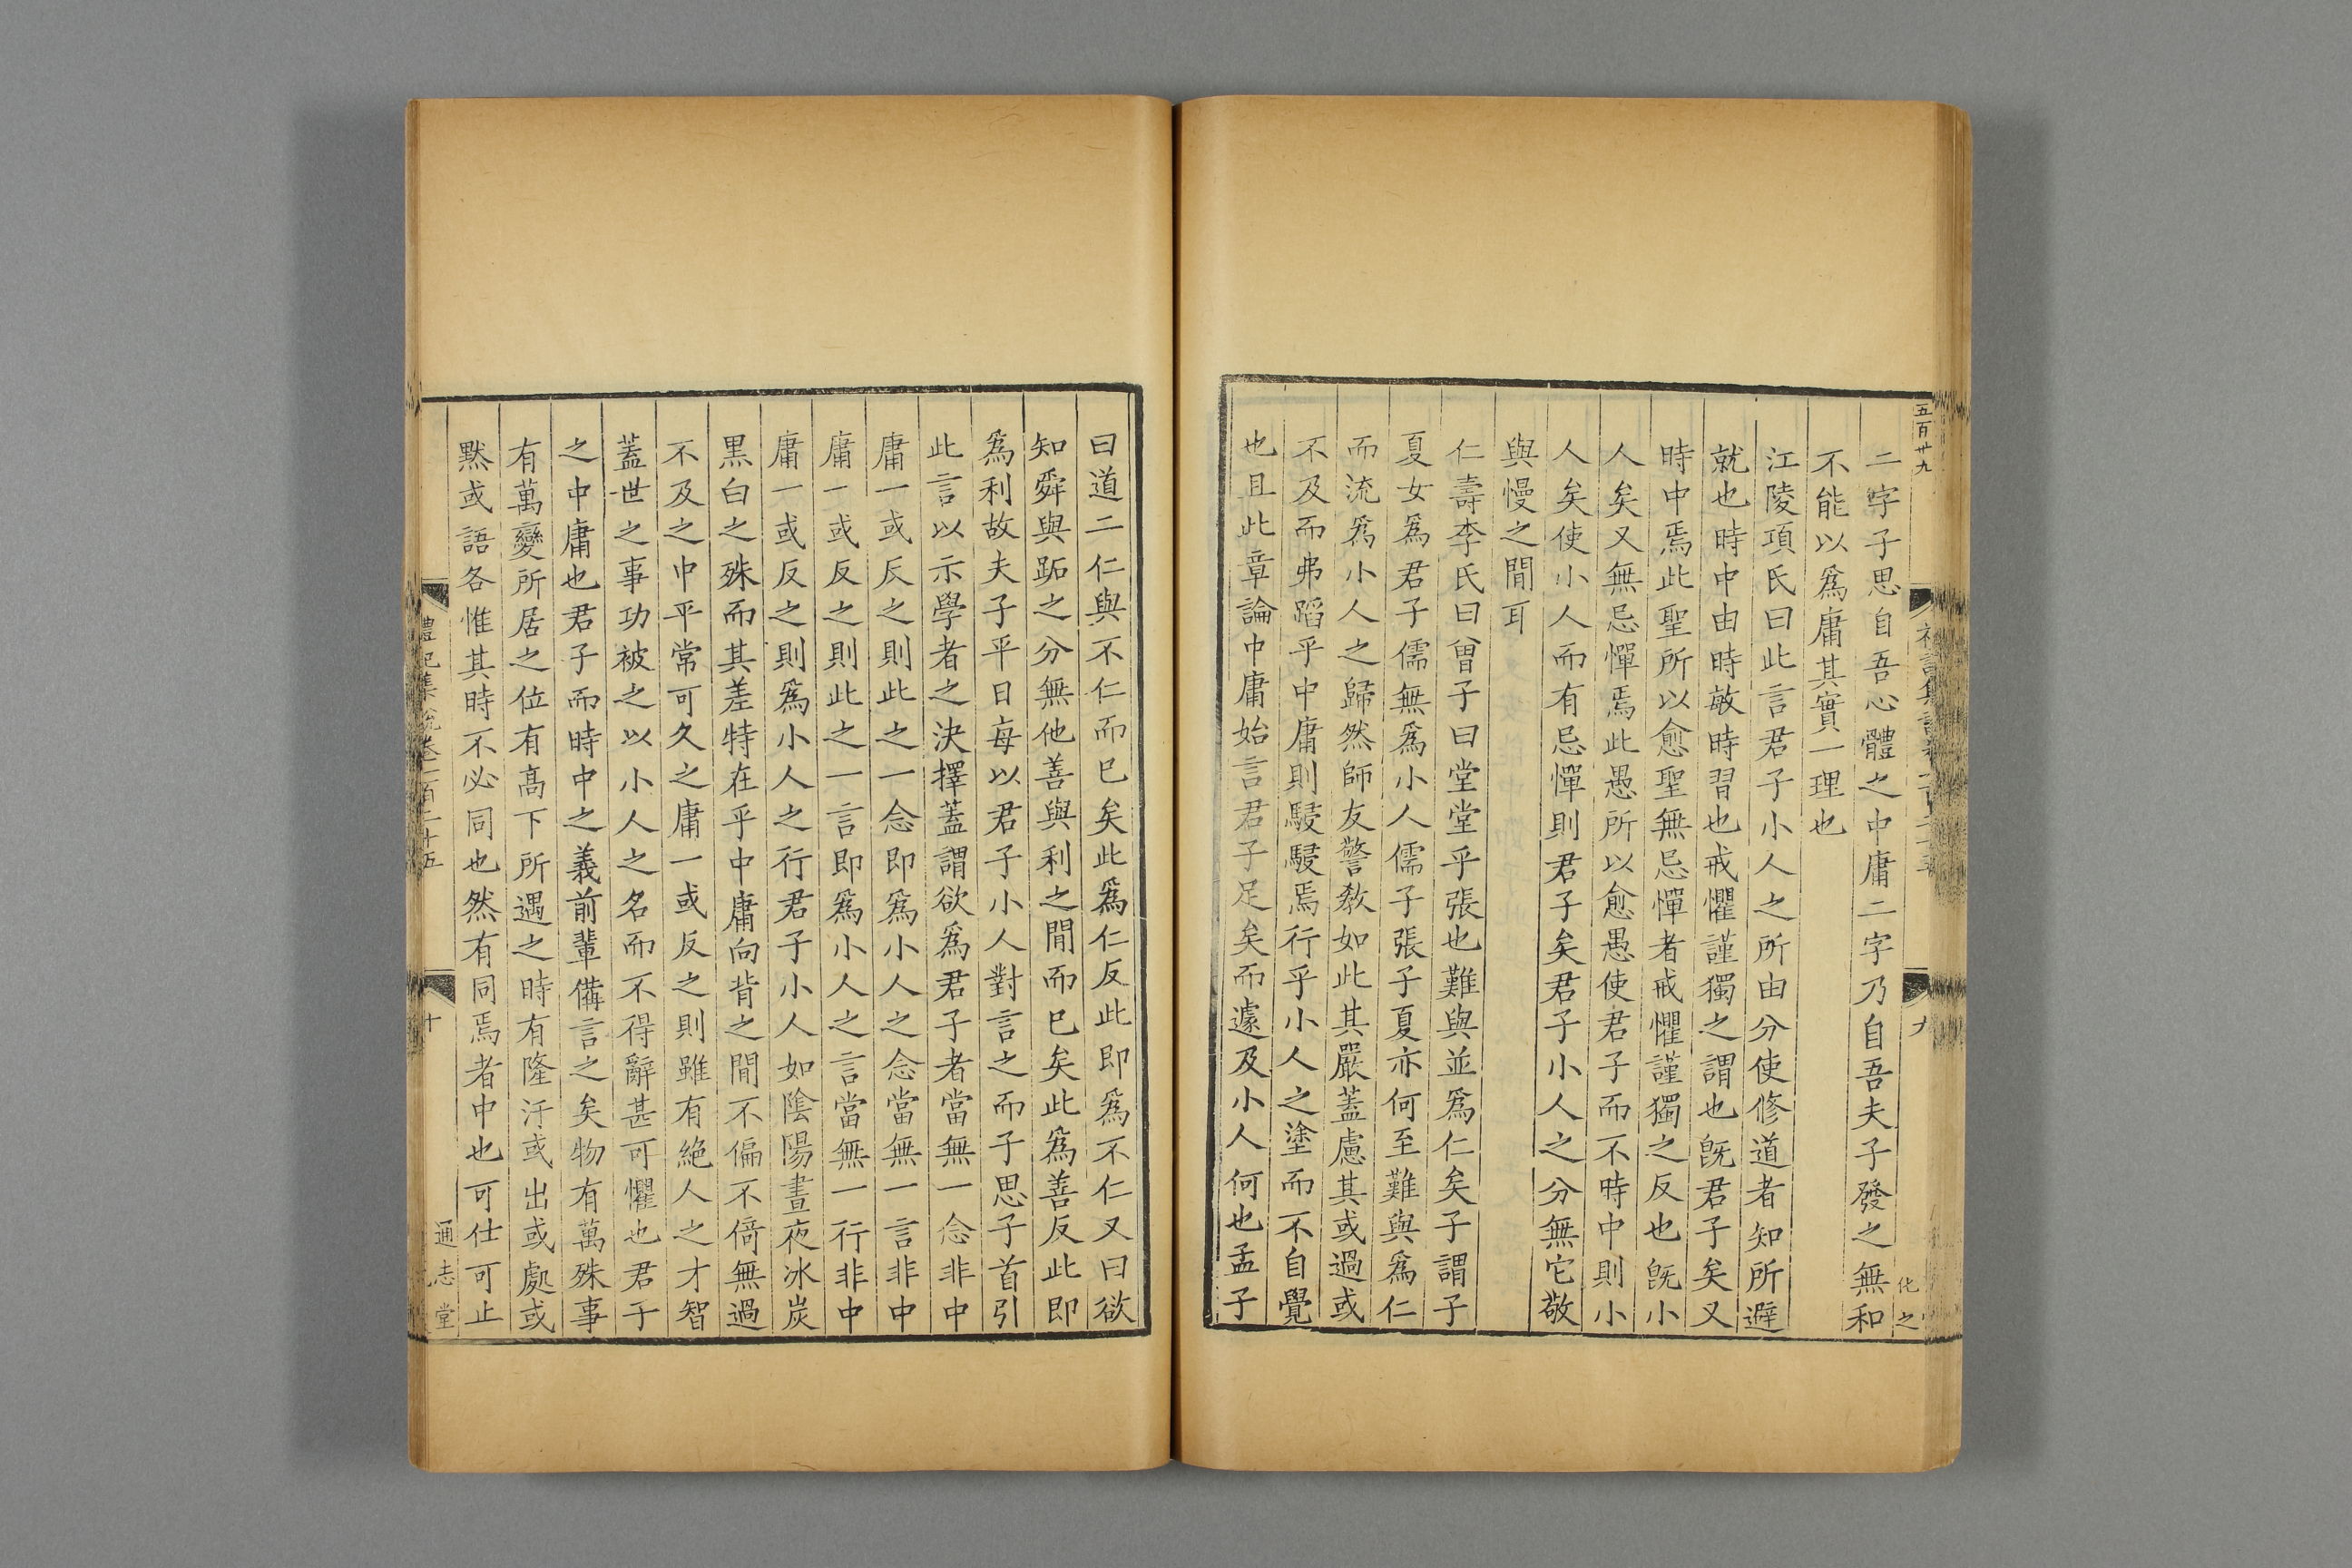 五百廿九
二字子思自吾心體之中庸二字乃自吾夫子發之無和
不能以爲庸其實一理也
江陵項氏曰此言君子小人之所由分使修道者知所避
就也時中由時敏時習也戒懼謹獨之謂也旣君子矣又
時中焉此聖所以愈聖無忌憚者戒懼謹獨之反也旣小
人矣又無忌憚焉此愚所以愈愚使君子而不時中則小
人矣使小人而有忌憚則君子矣君子小人之分無它敬
與慢之閒耳
仁壽李氏曰曾子曰堂堂乎張也難與並爲仁矣子謂子
夏女爲君子儒無爲小人儒子張子夏亦何至難與爲仁
而流爲小人之歸然師友警敎如此其嚴蓋慮其或過或
不及而弗蹈乎中庸則駸駸焉行乎小人之塗而不自覺
也且此章論中庸始言君子足矣而遽及小人何也孟子
九
化之
曰道二仁與不仁而已矣此爲仁反此即爲不仁又曰欲
知舜與跖之分無他善與利之閒而已矣此爲善反此即
爲利故夫子平日每以君子小人對言之而子思子首引
此言以示學者之決擇蓋謂欲爲君子者當無一念非中
庸一或反之則此之一念即爲小人之念當無一言非中
庸一或反之則此之一言即爲小人之言當無一行非中
庸一或反之則爲小人之行君子小人如陰陽晝夜冰炭
黑白之殊而其差特在乎中庸向背之閒不偏不倚無過
不及之中平常可久之庸一或反之則雖有絶人之才智
蓋世之事功被之以小人之名而不得辭甚可懼也君子
之中庸也君子而時中之義前輩備言之矣物有萬殊事
有萬變所居之位有高下所遇之時有隆汙或出或處或
黙或語各惟其時不必同也然有同焉者中也可仕可止
禮記集說卷一百二十五
十
通志堂